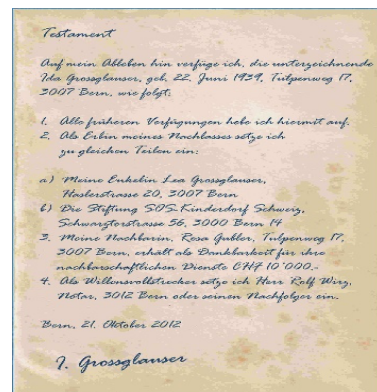 Testament
Auf mein Ableben hin verfüge ich, die unterzeichnende
Ida Grossglauser, geb. 22. Juni 1939, Tulpenweg 17,
3007 Bern, wie folgt:
1. Alle früheren Verfügungen hebe ich hiermit auf.
2. Als Erbin meines Nachlasses setze ich
zu gleichen Teilen ein:
a) Meine Enkelin Lea Grossglauser,
Haslerstrasse 20, 3007 Bern
b) Die Stiftung SOS-Kinderdorf Schweiz,
Schwarztorstrasse 56, 3000 Bern 14
3. Meine Nachbarin, Rosa Gubler, Tulpenweg 17,
3007 Bern, erhält als Dankbarkeit für ihre
nachbarschaftlichen Dienste CHF 10'000.-
4. Als Willensvollstrecker setze ich Herr Ralf Wirz,
Notar, 3012 Bern oder seinen Nachfolger ein.
Bern, 21. Oktober 2012
I. Grossglauser